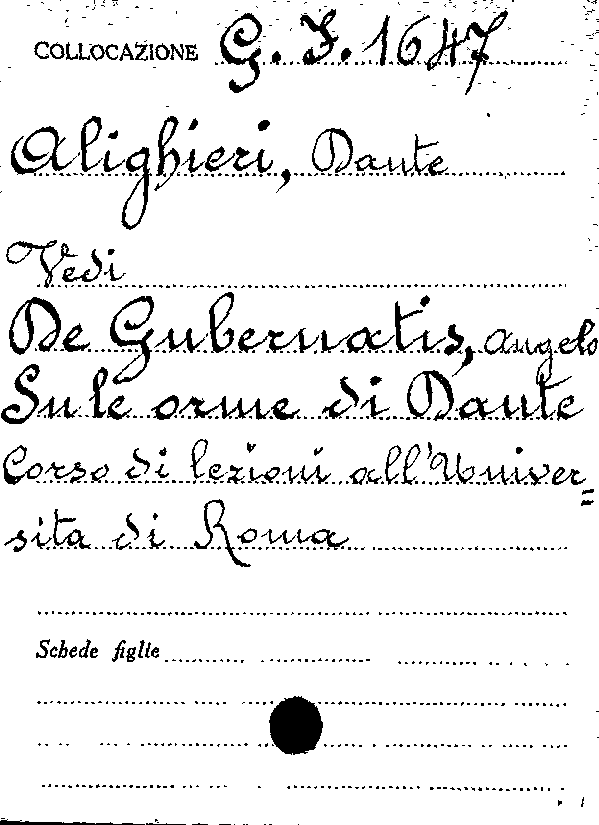 COLLOCAZIONE G. I. 1647
Alighieri, Dante
Vedi
De Gubernatis, Angelo
Su le orme di Dante
Corso di lezioni all'Univer=
sita di Roma
Schede figlie